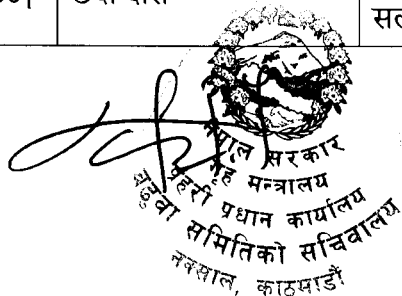 सल
नेपाल सरकार
गृह मन्त्रालय
प्रहरी प्रधान कार्यालय
बढुवा समितिको सचिवालय
नक्साल, काठमाडौं